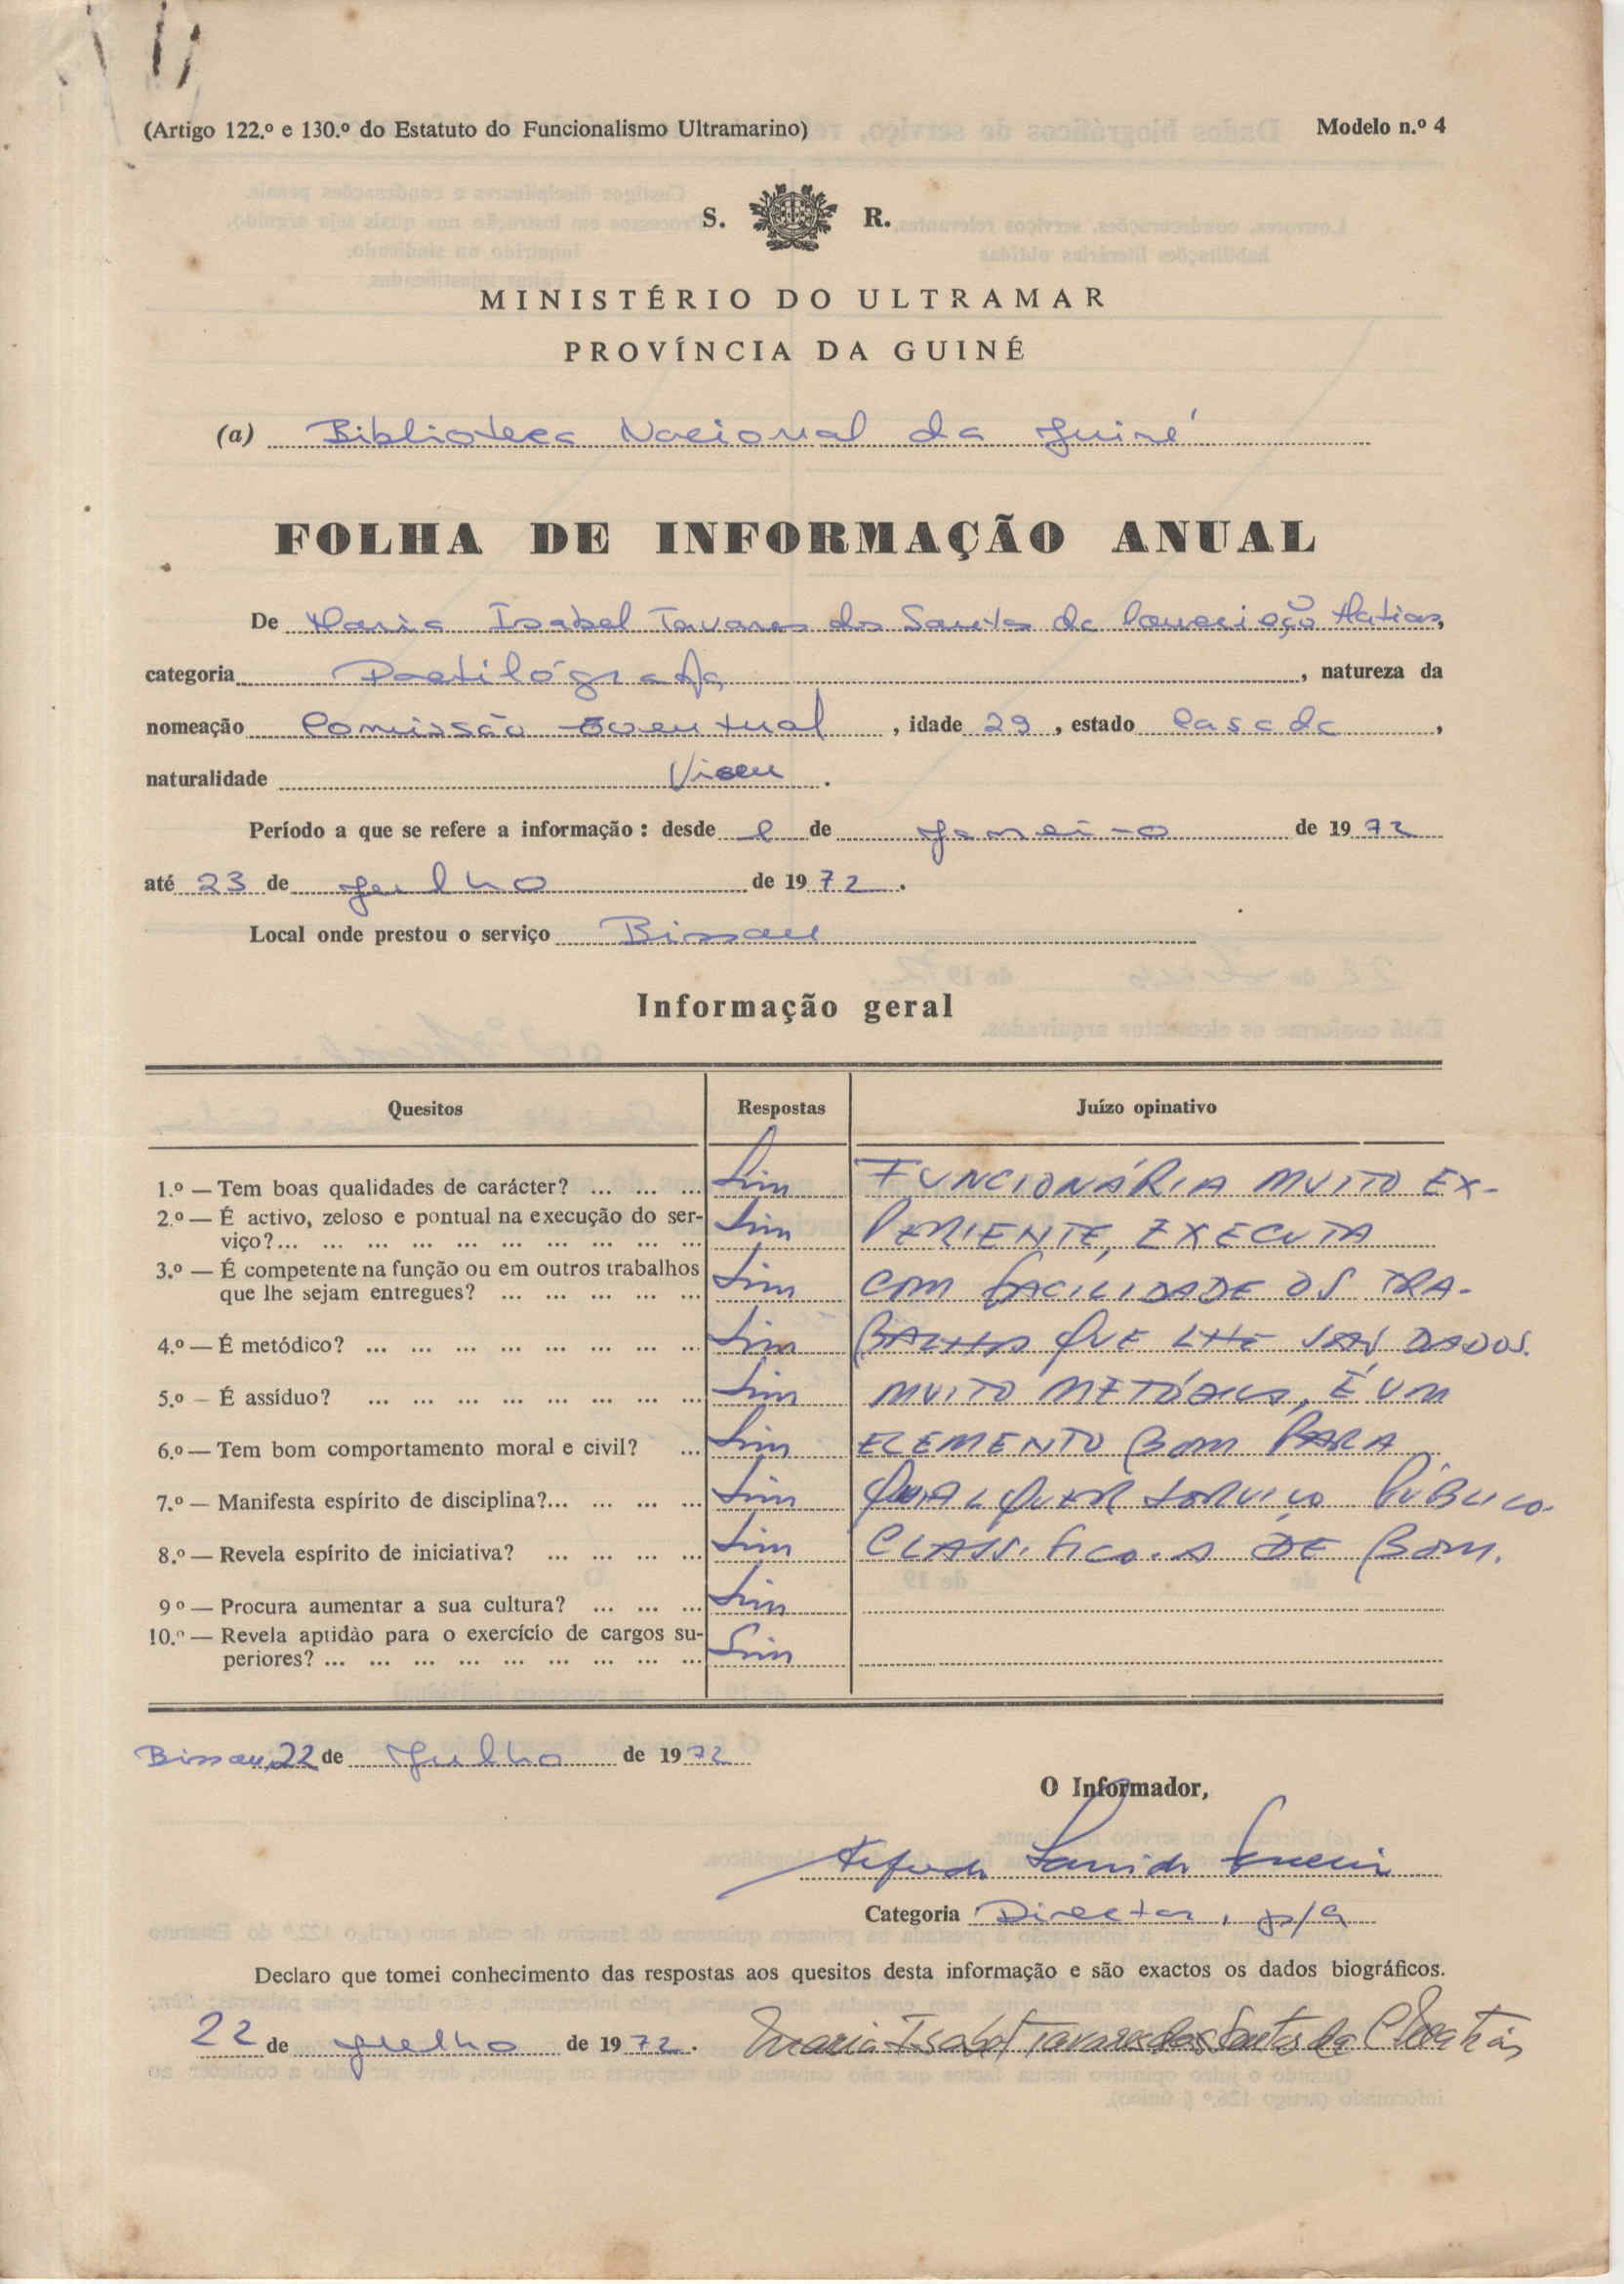 (Artigo 122.º e 130.º do Estatuto do Funcionalismo Ultramarino) Modelo n.º 4
S. R.
MINISTÉRIO DO ULTRAMAR
PROVÍNCIA DA GUINÉ
(a) Biblioteca Nacional da Guiné
FOLHA DE INFORMAÇÃO ANUAL
De Maria Isabel Tavares dos Santos da Conceição Matias,
categoria Dactilógrafa, natureza da
nomeação Comissão Eventual, idade 29, estado Casada,
naturalidade Viseu.
Período a que se refere a informação: desde de Janeiro de 1972
até 23 de Julho de 1972.
Local onde prestou o serviço Bissau
Informação geral
Quesitos Respostas Juízo opinativo
1.º — Tem boas qualidades de carácter? ... ... ... Sim FUNCIONÁRIA MUITO EX-
2.º — É activo, zeloso e pontual na execução do ser-
viço?... ... ... ... ... ... ... ... ... ... Sim PERIENTE, EXECUTA
3.º — É competente na função ou em outros trabalhos
que lhe sejam entregues? ... ... ... ... ... Sim COM FACILIDADE OS TRA-
4.º — É metódico? ... ... ... ... ... ... ... ... Sim BALHOS QUE LHE SÃO DADOS.
5.º — É assíduo? ... ... ... ... ... ... ... ... Sim MUITO METÓDICA, É UM
6.º — Tem bom comportamento moral e civil? ... Sim ELEMENTO BOM PARA
7.º — Manifesta espírito de disciplina?... ... ... ... Sim QUALQUER SERVIÇO PÚBLICO.
8.º — Revela espírito de iniciativa? ... ... ... ... Sim CLASSIFICO-A DE BOM.
9º — Procura aumentar a sua cultura? ... ... ... Sim
10.º — Revela aptidão para o exercício de cargos su-
periores? ... ... ... ... ... ... ... ... ... Sim
Bissau, 22 de Julho de 1972
O Informador,
Categoria Director, p/a
Declaro que tomei conhecimento das respostas aos quesitos desta informação e são exactos os dados biográficos.
22 de Julho de 1972. Maria Isabel Tavares dos Santos da C Matias